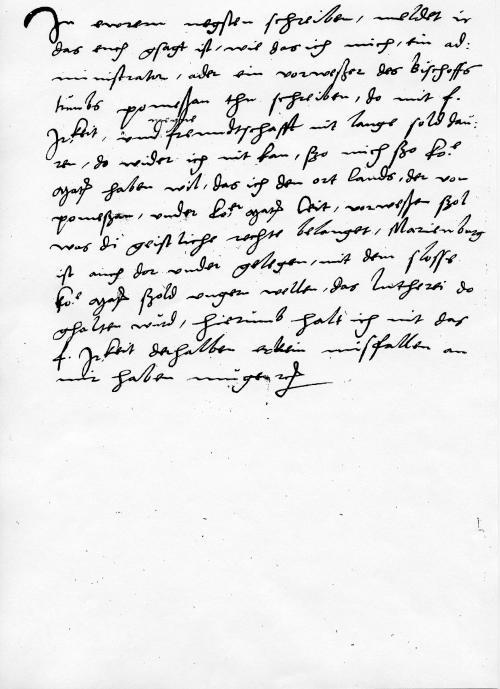 In ewrem negsten schreiben, meldet ir
das euch gsagt ist, wie das ich mich, ein ad:
ministrator, oder ein vorweßer des Bischoffs
tumbs pomessan thu schreiben, do mit f.
Irkeit, und freundtschafft nit lange sold dau:
ren, do wider ich nit kan, ßo mich ßo ko.e
maᵗ haben wil, das ich den ort lands, der von
pomeßan, under ko.r maᵗ leit, vorwessen ßol
was di geistliche rechte belanget, Marienburg
ist auch dor under gelegen, mit dem slosse
ko.e maᵗ ßold ungern wellen, das lutherei do
ghalten wurd, hierumb halt ich nit das
f. Irkeit derhalben eckein misfallen an
mir haben muge